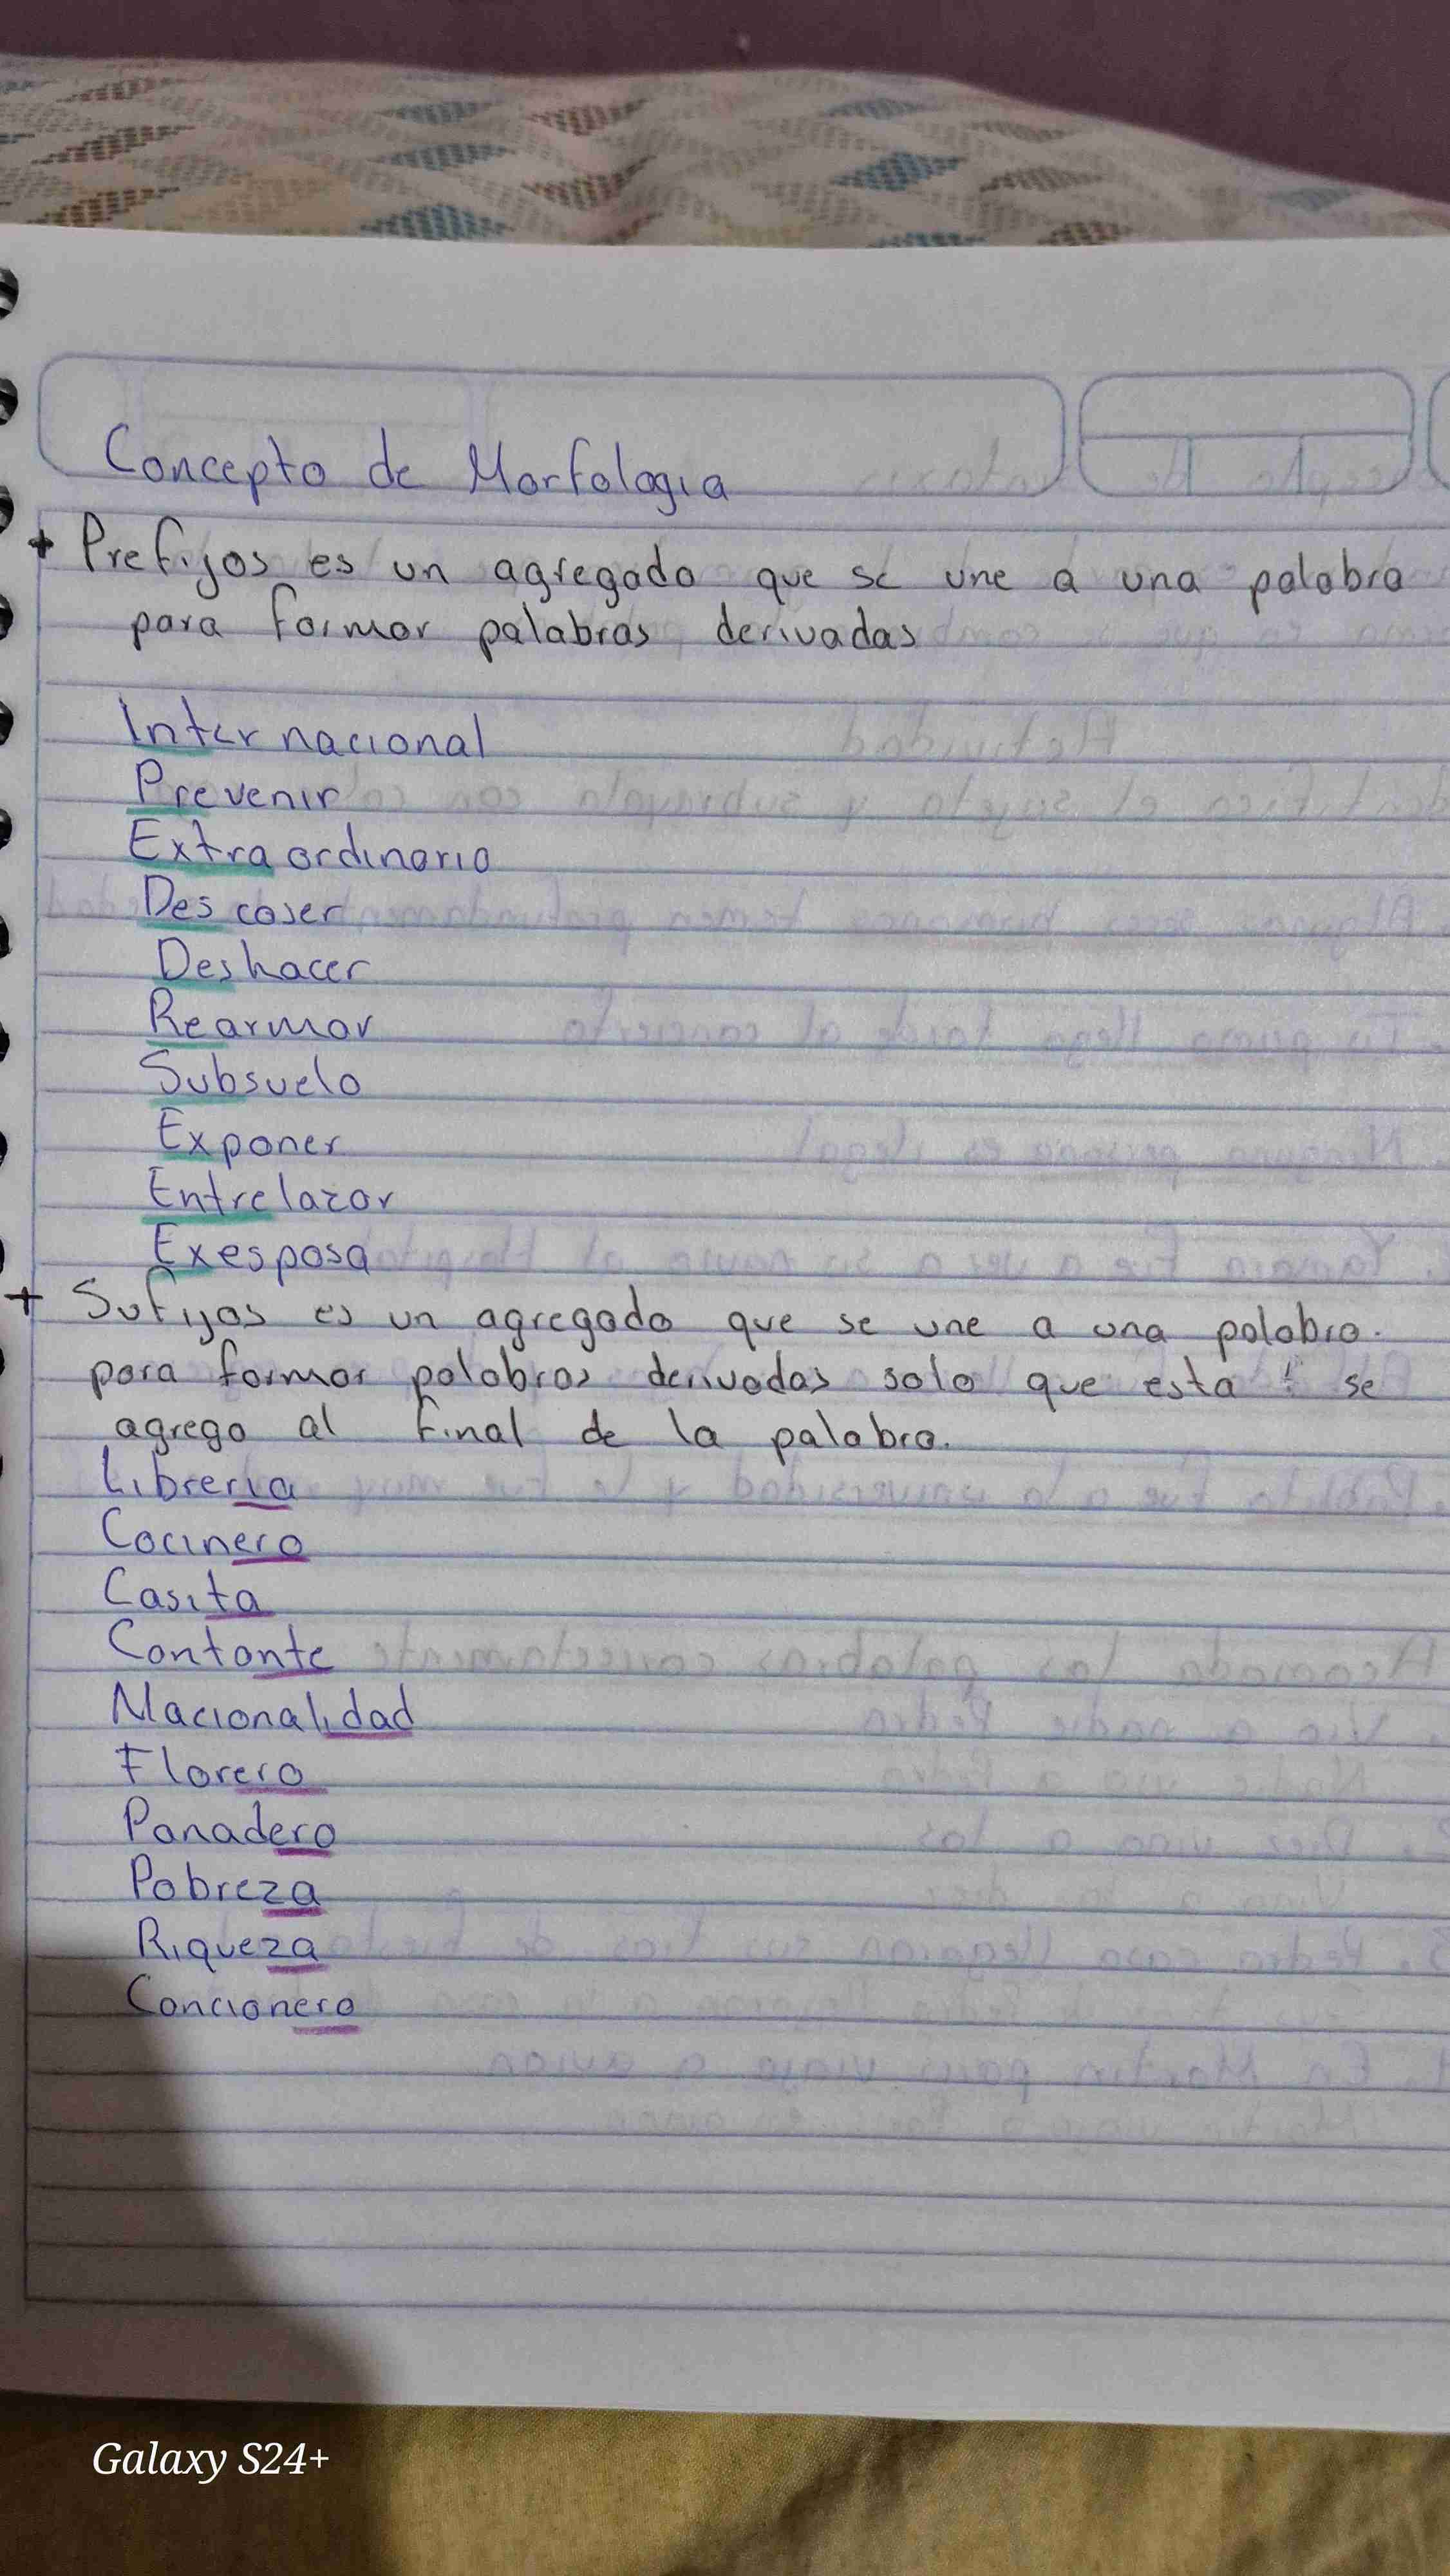 Concepto de Morfologia
+ Prefijos es un agregado que se une a una palabra
para formar palabras derivadas
Internacional
Prevenir
Extraordinario
Descoser
Deshacer
Rearmar
Subsuelo
Exponer
Entrelazar
Exesposa
+ Sufijos es un agregado que se une a una palabra.
para formar palabras derivadas solo que esta se
agrega al final de la palabra.
Libreria
Cocinero
Casita
Cantante
Nacionalidad
Florero
Panadero
Pobreza
Riqueza
Cancionero
Galaxy S24+